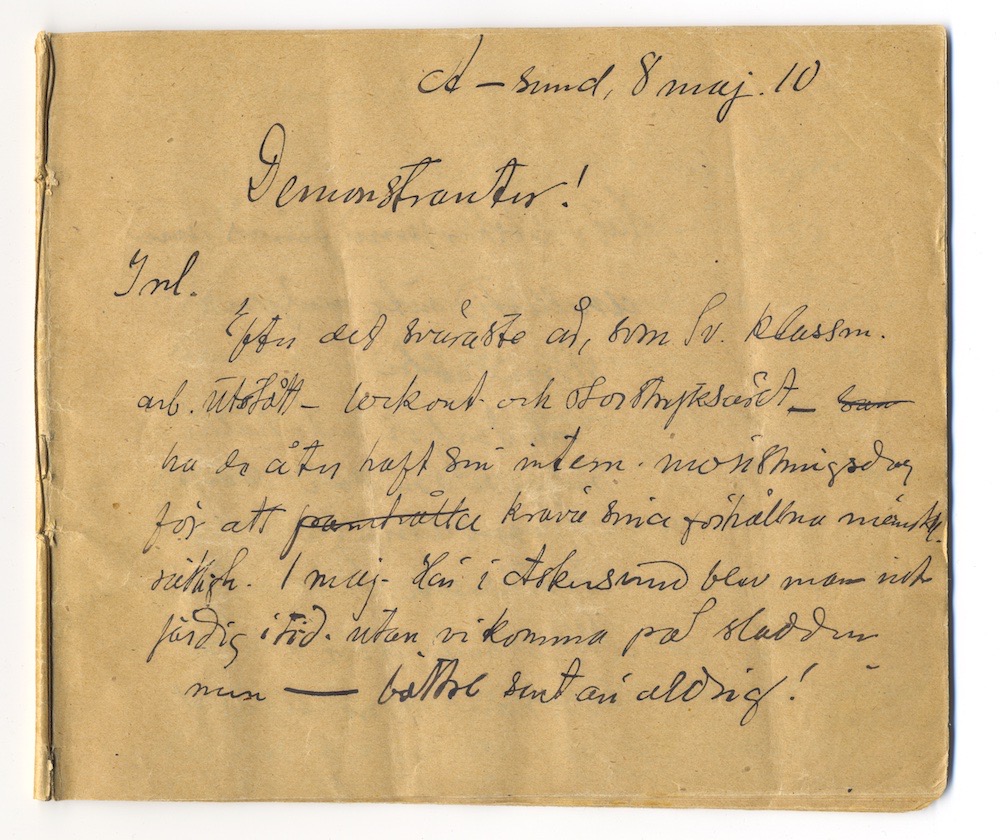 A – sund, 8 maj. 10
Demonstranter!
Inl.
Efter det svåraste år, som Sv. klassm.
arb. utstått – lockout- och storstrejksåret –
ha de åter haft sin intern. mönstringsdag
för att framhålla kräva sina förhållna människ.
rättigh. 1 maj. Här i Askersund blev man icke
färdig i tid. utan vi komma på sladden
men — bättre sent än aldrig!